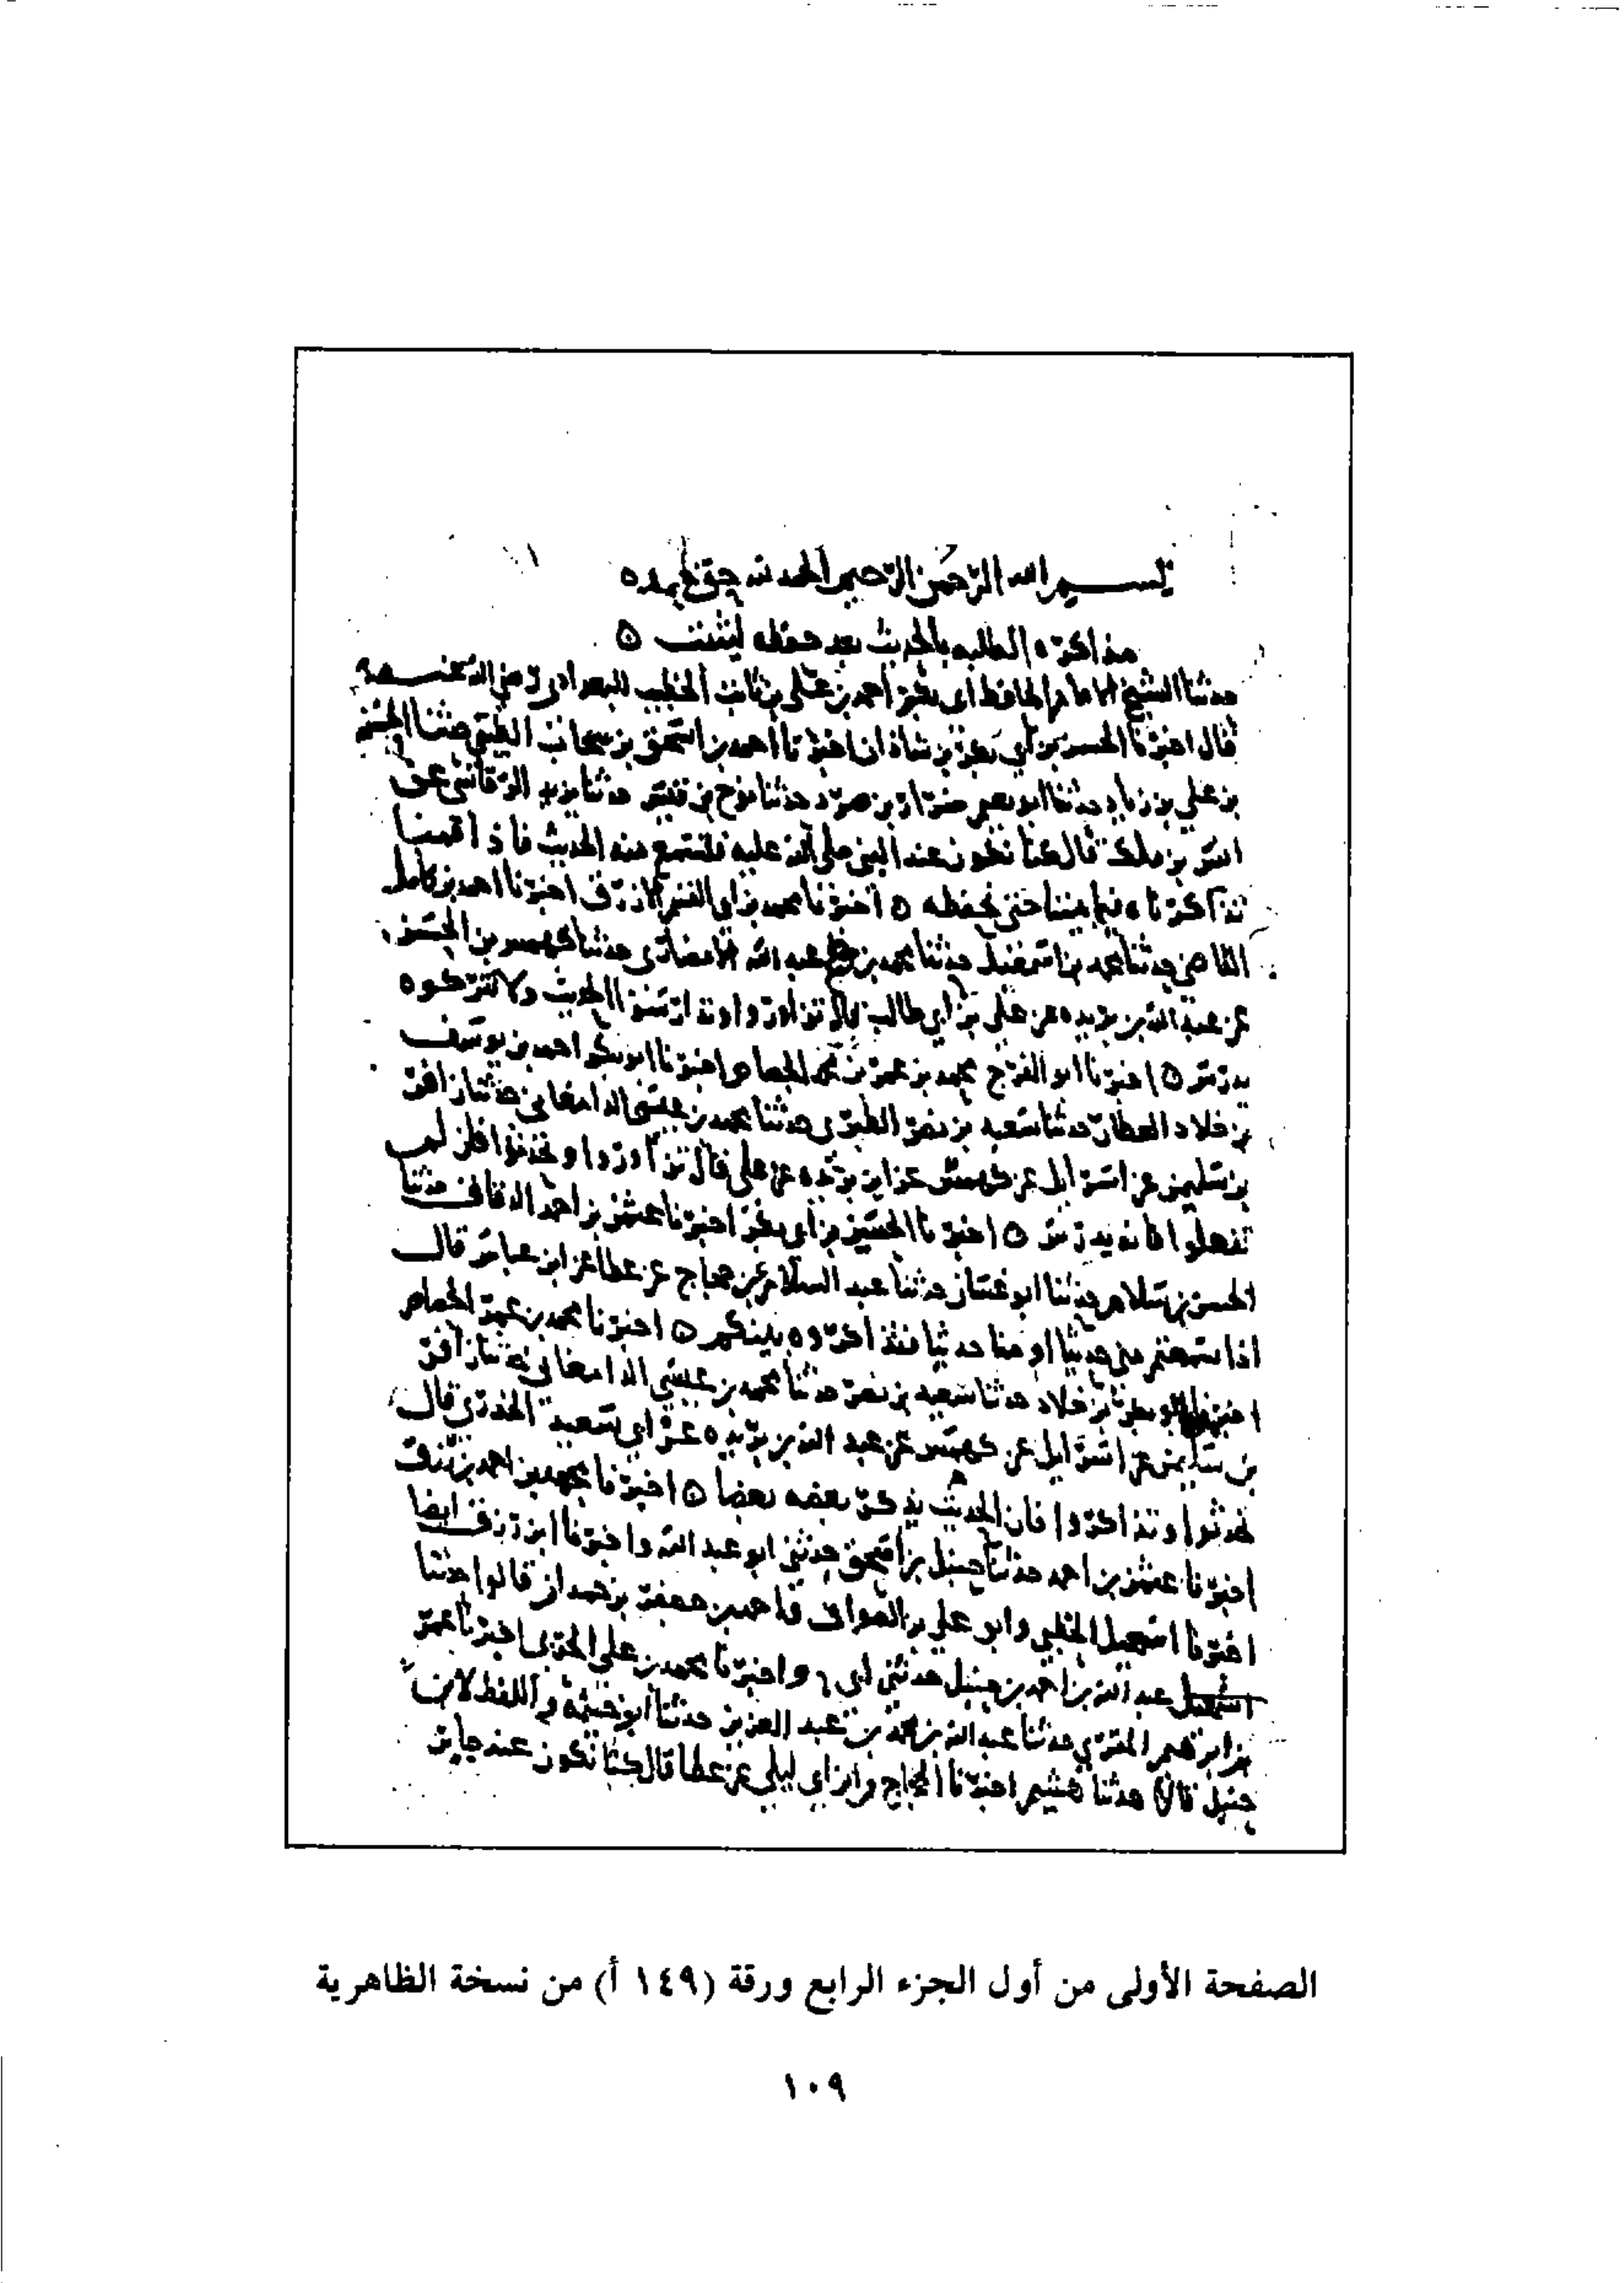 بسم الله الرحمن الرحيم الحمد لله حق حمده
مذاكره الطلبه بالحديث بعد حفظه ليثبت ه
حدثنا الشيخ الامام الحافظ ابي بكر احمد بن علي بن ثابت الخطيب البغدادي رضي الله عنه
قال اخبرنا الحسن بن ابي بكر بن شاذان اخبرنا احمد بن اسحق بن نيخاب الطيبي حدثنا الحسن
بن علي بن زياد حدثنا ابو نعيم ضرار بن صرد حدثنا نوح بن قيس حدثنا يزيد الرقاشي عن
انس بن ملك قال كنا نكون عند النبي صلى الله عليه فنستمع منه الحديث فاذا قمنا
تذاكرناه فيما بيننا حتى نحفظه ه اخبرنا محمد بن ابي القسم الازرق اخبرنا احمد بن كامل
القاضي حدثنا محمد بن اسمعيل حدثنا محمد بن عبد الله الانصاري حدثنا كهمس بن الحسن
عن عبد الله بن بريده عن علي بن ابي طالب قال تزاوروا وتدارسوا الحديث ولا تتركوه
يدرس ه اخبرنا ابو الفرج محمد بن عمر بن محمد الجصاص اخبرنا ابو بكر احمد بن يوسف
بن خلاد العطار حدثنا سعيد بن نصر الطبري حدثنا محمد بن عيسى الدامغاني حدثنا زافر
بن سليمن عن اسرائيل عن كهمس عن ابن بريده عن علي قال تزاوروا وتحدثوا فان لم
تفعلوا فانه يدرس ه اخبرنا الحسن بن ابي بكر اخبرنا عثمن بن احمد الدقاق حدثنا
الحسن بن سلام حدثنا ابو غسان حدثنا عبد السلام عن حجاج عن عطا عن ابن عباس قال
اذا سمعتم مني حديثا او منا حديثا فتذاكروه بينكم ه اخبرنا محمد بن عمر الجصاص
اخبرنا ابو بكر بن خلاد حدثنا سعيد بن نصر حدثنا محمد بن عيسى الدامغاني حدثنا زافر
بن سليمن عن اسرائيل عن كهمس عن عبد الله بن بريده عن ابي سعيد الخدري قال
تحدثوا وتذاكروا فان الحديث يذكر بعضه بعضا ه اخبرنا محمد بن احمد بن رزق
اخبرنا عثمن بن احمد حدثنا حنبل بن اسحق حدثني ابو عبد الله واخبرنا ابن رزق ايضا
اخبرنا اسمعيل الخطبي وابو علي بن الصواف واحمد بن جعفر بن حمدان قالوا حدثنا
عبد الله بن احمد بن حنبل حدثني ابي واخبرنا محمد بن علي الحربي اخبرنا عمر
بن ابرهيم المقري حدثنا عبد الله بن محمد بن عبد العزيز حدثنا ابو خيثمة واللفظ لابن
حنبل قالا حدثنا هشيم اخبرنا الحجاج وابن ابي ليلى عن عطا قال كنا نكون عند جابر
الصفحة الأولى من أول الجزء الرابع ورقة (١٤٩ أ) من نسخة الظاهرية
١٠٩